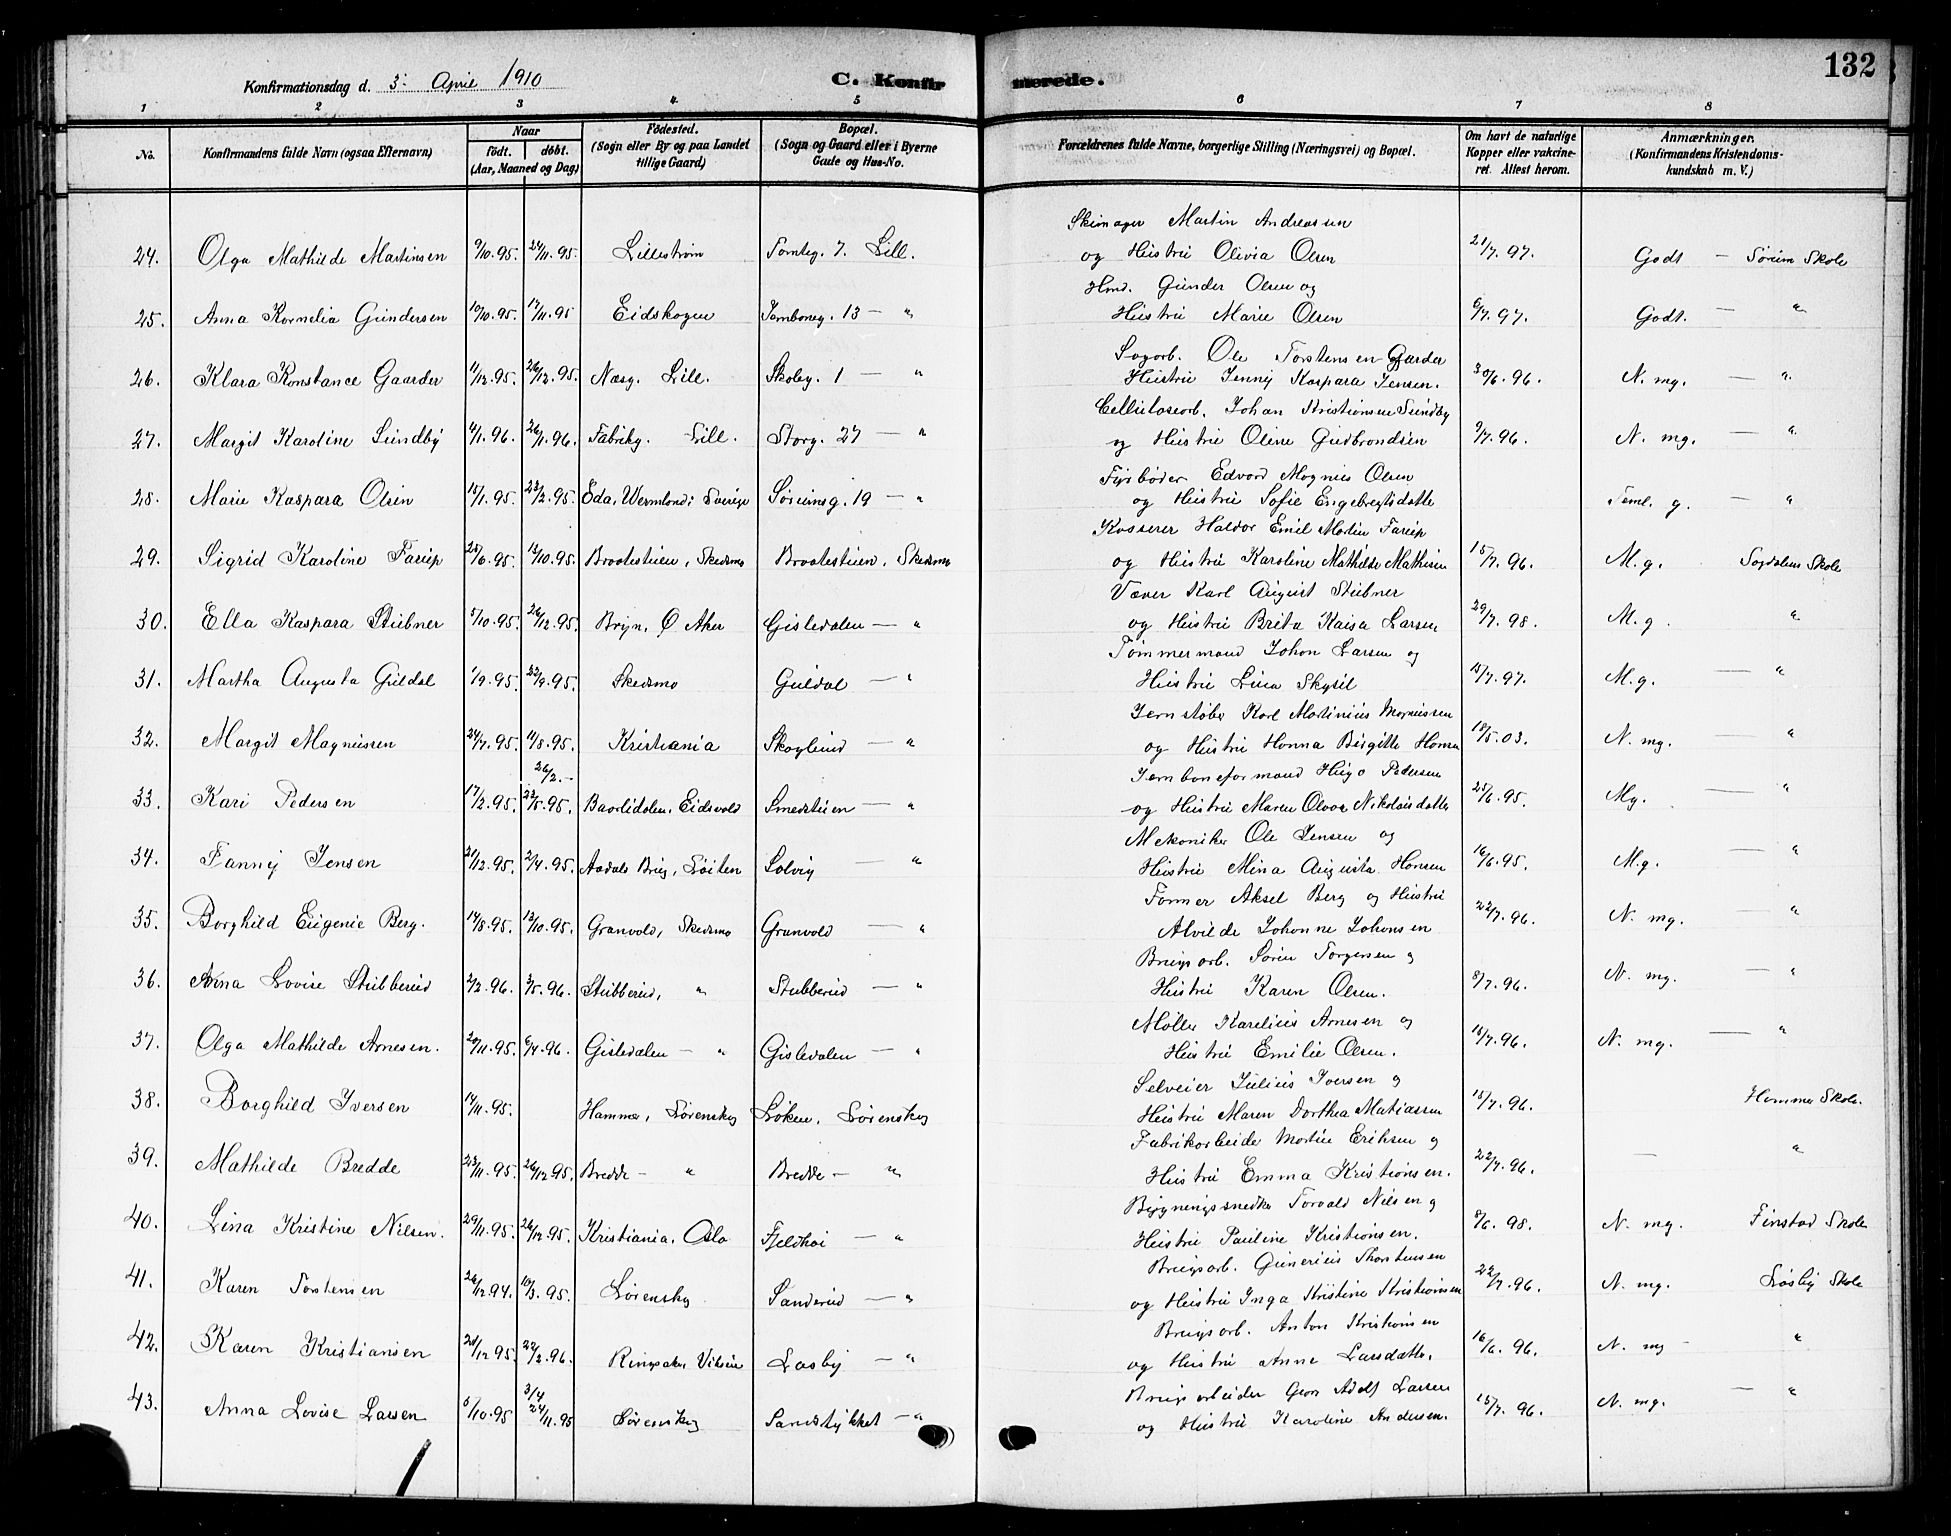 132
Konfirmationsdag d. 3. April 1910
C. Konfirmerede.
1 2 3 4 5 6 7 8
No.
Konfirmandens fulde Navn (ogsaa Efternavn)
Naar
født. døbt.
(Aar, Maaned og Dag)
Fødested.
(Sogn eller By og paa Landet tillige Gaard)
Bopæl.
(Sogn og Gaard eller i Byerne Gade og Hus-No.
Forældrenes fulde Navne, borgerlige Stilling (Næringsvei) og Bopæl.
Om havt de naturlige Kopper eller vakcineret. Attest herom.
Anmærkninger.
(Konfirmandens Kristendomskundskab m. V.)
Martin Andreassen
24. Olga Mathilde Martinsen 9/10.95. 24/11.95. Lillestrøm Tomteg. 7. Lill. og Hustru Olivia Olsen 21/7.97. Godt — Sørum Skole
Gunder Olsen og
25. Anna Kornelia Gundersen 10/10.95. 17/11.95 Eidskogen 13 — " Hustru Marie Olsen 6/7.97. Godt. — "
Sagarb. Ole Torstensen Gjærder
26. Klara Konstance Gaarder 11/12.95. 26/12.95. Næsg. Lill. Skoleg. 1 — " Hustru Jenny Kaspara Jensen. 30/6.96. N. mg. — "
Celluloseorb. Johan Kristiansen Sundby
27. Margit Karoline Sundby 4/1.96. 26/1.96. Fabrikg. Lill. Storg. 27 — " og Hustru Oline Gudbrandsen 9/7.96. N. mg. — "
Fyrbøder Edvard Magnus Olsen
28. Marie Kaspara Olsen 15/1.95. 23/2.95. Eda, Wermland, Sverige Sørumsg. 19 — " og Hustru Sofie Engebregtsdatte Teml. g. — "
Kasserer Haldor Emil Martin Farup
29. Sigrid Karoline Farup 25/6.95. 13/10.95. Braatestuen, Skedsmo Braatestuen, Skedsmo og Hustru Karoline Mathilde Mathisen 15/7.96. M.g. Sagdalens Skole
Væver Karl August Stubner
30. Ella Kaspara Stubner 5/10.95. 26/12.95. Bryn, Ø Aker Gisledalen — " og Hustru Brita Kaisa Larsen 29/7.98. M.g. "
Tømmermand Johan Larsen og
31. Martha Augusta Guldal 1/9.95. 22/9.95. Skedsmo Guldal — " Hustru Lina Skysil 15/7.97. M.g. — "
Jernstøber Karl Martinius Magnussen
32. Margit Magnussen 24/7.95. 11/8.95. Kristiania Skoglund — " og Hustru Hanna Birgitte Hansen 18/5.03. N. mg. — "
26/2.-
Jernbaneformand Hugo Pedersen
33. Kari Pedersen 17/2.95. 23/5.95. Eidsvold Smedstuen — " og Hustru Maren Olava Nikolaisdatter 25/6.95. Mg. — "
Mekaniker Ole Jensen og
34. Fanny Jensen 21/12.95. 2/4.95. Aadals Brug, Løiten Solvig — " Hustru Mina Augusta Hansen 16/6.95. M.g. — "
Former Aksel Berg og Hustru
35. Borghild Eugenie Berg. 14/8.95. 13/10.95. Granvold, Skedsmo Granvold — " Alvilde Johanne Johansen 22/7.96. N. mg. — "
Brugsorb. Søren Torgersen og
36. Anna Lovise Stubberud 2/2.96. 3/5.96. Stubberud, " Stubberud — " Hustru Karen Olsen. 8/7.96. N. mg. — "
Møller Karelius Arnesen og
37. Olga Mathilde Arnesen. 20/11.95. 6/4.96. Gisledalen — " Gisledalen — " Hustru Emilie Olsen. 15/7.96. N. mg. — "
Selveier Julius Iversen og
38. Borghild Iversen 14/11.95. Hammer, Lørenskog Løken, Lørenskog Hustru Maren Dorthea Matiassen 15/7.96. Hammer Skole.
Fabrikarbeider Martin Eriksen og
39. Mathilde Bredde 23/11.95. 26/12.95. Bredde — " Bredde — " Hustru Emma Kristiansen. 22/7.96. — "
Bygningssnedker Torvald Nilsen og
40. Lina Kristine Nilsen. 29/11.95. 26/12.95. Kristiania, Oslo Fjeldhøi — " Hustru Pauline Kristiansen. 8/6.98. N. mg. Finstad Skole
Brugsorb. Gunerius Thorstensen
41. Karen Torstensen 26/12.94. 10/3.95. Lørenskog Sanderud — " og Hustru Inga Kristine Kristiansen 22/7.96. N. mg. Losby Skole
Brugsorb. Anton Kristiansen
42. Karen Kristiansen 20/12.95. 22/2.96. Ringsaker, Losby — " og Hustru Anne Larsdatter. 16/6.96. N. mg — "
3/4
Brugsarbeider Adolf Larsen
43. Anna Lovise Larsen 5/10.95 24/11.95 Lørenskog Sandstykket — " og Hustru Karoline Andersen. 15/7.96. N. mg. — "